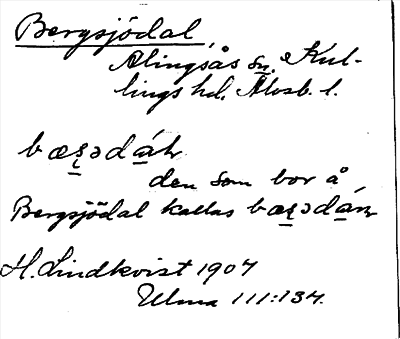 Bergsjödal,
Alingsås sn. Kul-
lings hd. Älvsb. l.
den som bor å
Bergsjödal kallas
H. Lindkvist 1907
Ulma 111:134.